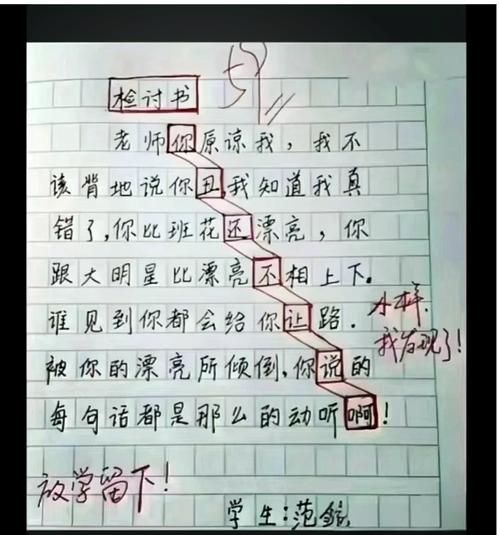 检讨书
老师你原谅我，我不
该背地说你丑，我知道我真
错了，你比班花还漂亮，你
跟大明星比漂亮不相上下。
谁见到你都会给你让路．
小样．
我发现了！
被你的漂亮所倾倒，你说的
每句话都是那么的动听啊！
放学留下！
学生：范